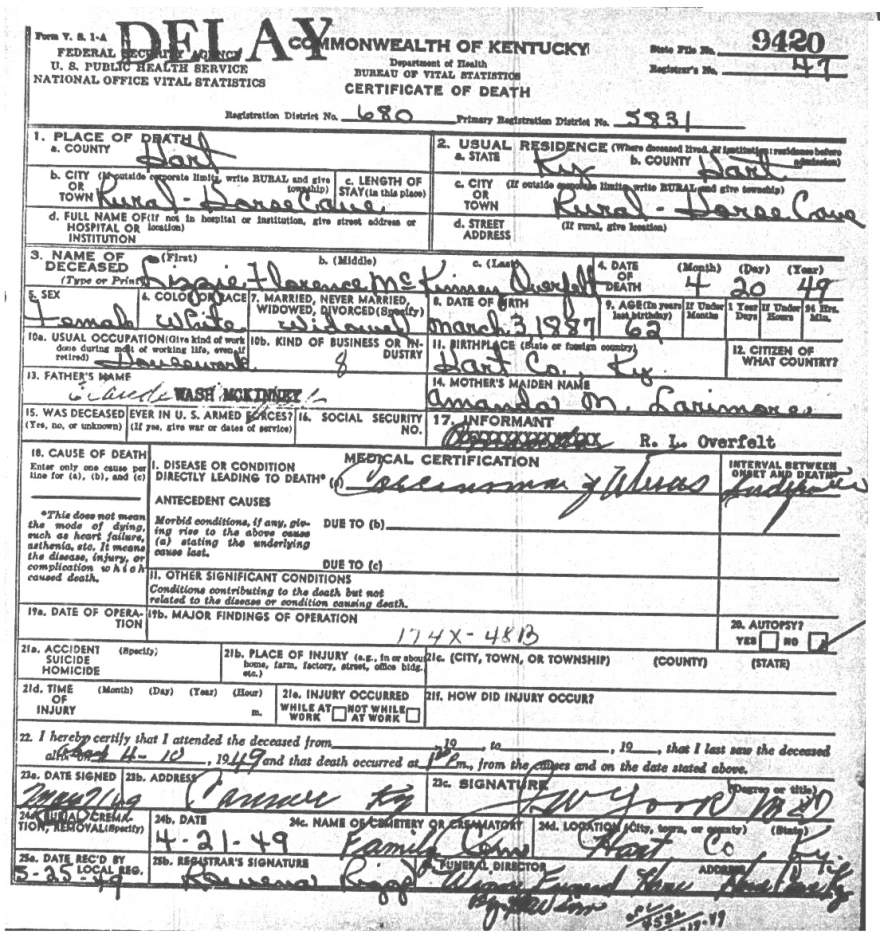 DELAY
Form V. S. 1-A
FEDERAL SECURITY AGENCY
U. S. PUBLIC HEALTH SERVICE
NATIONAL OFFICE VITAL STATISTICS
COMMONWEALTH OF KENTUCKY
Department of Health
BUREAU OF VITAL STATISTICS
CERTIFICATE OF DEATH
State File No. 9420
Registrar's No. 47
Registration District No. 680 Primary Registration District No. 5831
1. PLACE OF DEATH
a. COUNTY Hart
b. CITY (If outside corporate limits, write RURAL and give township) OR TOWN Rural - Horse Cave
c. LENGTH OF STAY (in this place)
d. FULL NAME OF (If not in hospital or institution, give street address or location) HOSPITAL OR INSTITUTION
2. USUAL RESIDENCE (Where deceased lived. If institution: residence before admission)
a. STATE Ky. b. COUNTY Hart
c. CITY (If outside corporate limits, write RURAL and give township) OR TOWN Rural - Horse Cave
d. STREET ADDRESS (If rural, give location)
3. NAME OF DECEASED (Type or Print)
a. (First) b. (Middle) c. (Last)
Lizzie Florence McKinney Overfelt
4. DATE OF DEATH (Month) (Day) (Year)
4 20 49
5. SEX Female
6. COLOR OR RACE White
7. MARRIED, NEVER MARRIED, WIDOWED, DIVORCED (Specify) Widowed
8. DATE OF BIRTH March 3, 1887
9. AGE (In years last birthday) 62
If Under 1 Year Months Days If Under 24 Hrs. Hours Min.
10a. USUAL OCCUPATION (Give kind of work done during most of working life, even if retired) Housework
10b. KIND OF BUSINESS OR INDUSTRY 8
11. BIRTHPLACE (State or foreign country) Hart Co., Ky.
12. CITIZEN OF WHAT COUNTRY?
13. FATHER'S NAME WASH MCKINNEY
14. MOTHER'S MAIDEN NAME Amanda M. Larimore
15. WAS DECEASED EVER IN U. S. ARMED FORCES? (Yes, no, or unknown) (If yes, give war or dates of service)
16. SOCIAL SECURITY NO.
17. INFORMANT R. L. Overfelt
18. CAUSE OF DEATH
Enter only one cause per line for (a), (b), and (c)
*This does not mean the mode of dying, such as heart failure, asthenia, etc. It means the disease, injury, or complication which caused death.
MEDICAL CERTIFICATION
I. DISEASE OR CONDITION DIRECTLY LEADING TO DEATH* (a) Carcinoma of Uterus
INTERVAL BETWEEN ONSET AND DEATH
ANTECEDENT CAUSES
Morbid conditions, if any, giving rise to the above cause (a) stating the underlying cause last.
DUE TO (b)
DUE TO (c)
II. OTHER SIGNIFICANT CONDITIONS
Conditions contributing to the death but not related to the disease or condition causing death.
19a. DATE OF OPERATION
19b. MAJOR FINDINGS OF OPERATION
174X-48B
20. AUTOPSY?
YES NO
21a. ACCIDENT SUICIDE HOMICIDE (Specify)
21b. PLACE OF INJURY (e.g., in or about home, farm, factory, street, office bldg. etc.)
21c. (CITY, TOWN, OR TOWNSHIP) (COUNTY) (STATE)
21d. TIME OF INJURY (Month) (Day) (Year) (Hour) m.
21e. INJURY OCCURRED
WHILE AT WORK NOT WHILE AT WORK
21f. HOW DID INJURY OCCUR?
22. I hereby certify that I attended the deceased from , 19 , to , 19 , that I last saw the deceased
alive on 4-10, 1949 and that death occurred at m., from the causes and on the date stated above.
23a. DATE SIGNED
23b. ADDRESS Canmer Ky
23c. SIGNATURE (Degree or title)
MD
24a. BURIAL, CREMATION, REMOVAL (Specify)
24b. DATE 4-21-49
24c. NAME OF CEMETERY OR CREMATORY Family Cem
24d. LOCATION (City, town, or county) (State) Hart Co Ky.
25a. DATE REC'D BY LOCAL REG. 5-25-49
25b. REGISTRAR'S SIGNATURE Rowena
FUNERAL DIRECTOR ADDRESS
Winn Funeral Home Horse Cave Ky